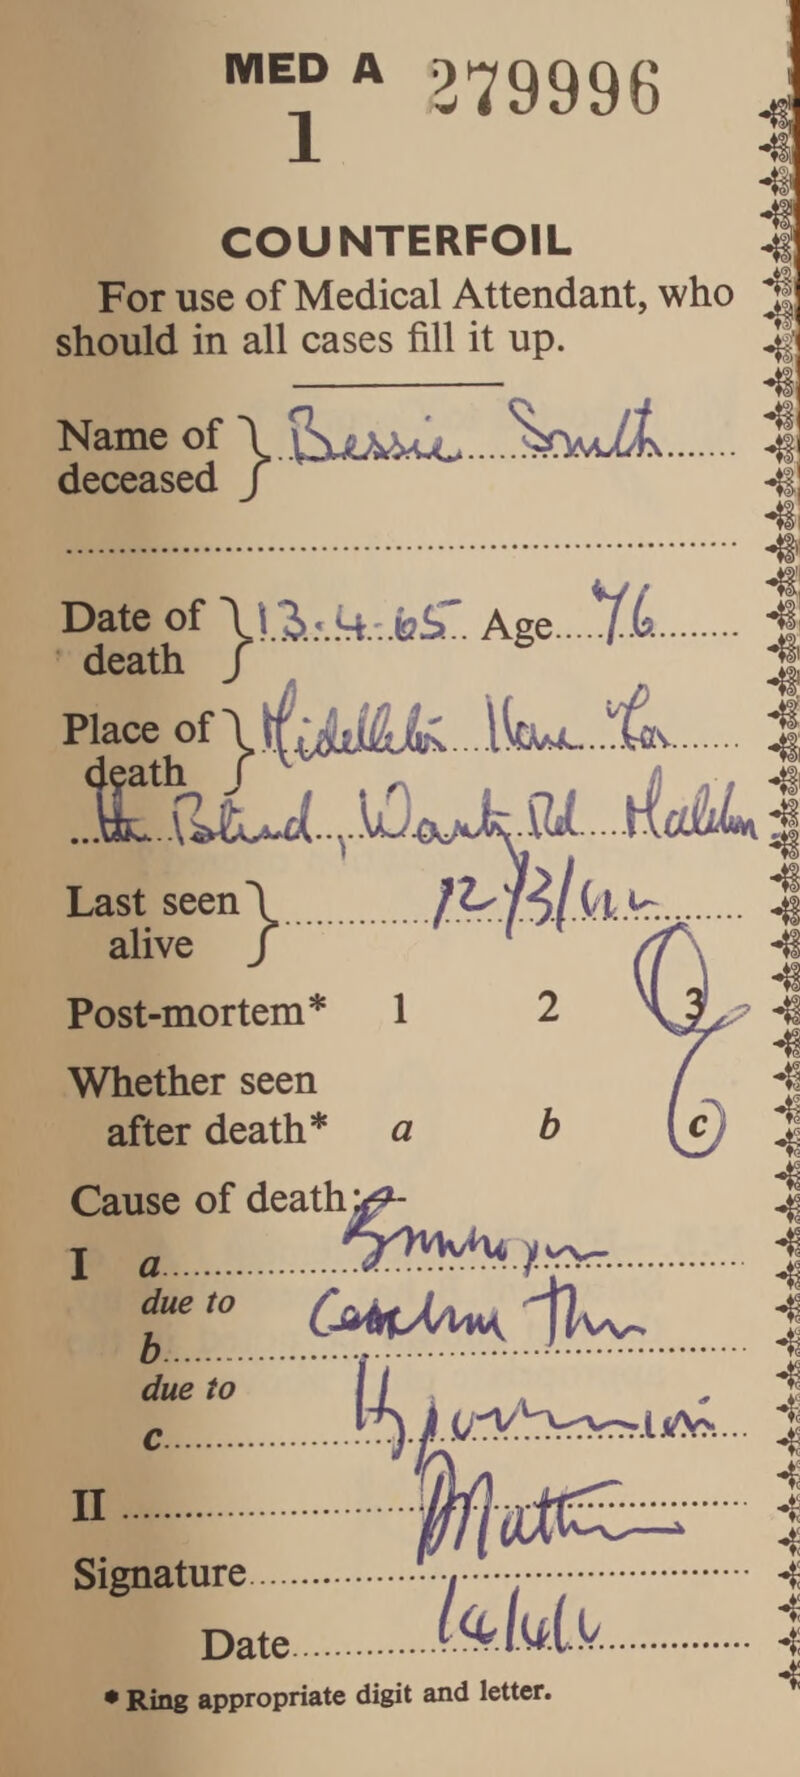 MED A 279996
1
COUNTERFOIL
For use of Medical Attendant, who
should in all cases fill it up.
Name of deceased } Bessie Smith
Date of death } 13.4.65 Age 76
Place of death } Middleton House For
the Blind, Wantz Rd Maldon
Last seen alive } 12/3/
Post-mortem* 1 2 3
Whether seen
after death* a b c
Cause of death:—
I a
due to
b
due to
c
II
Signature
Date 14/4/
* Ring appropriate digit and letter.